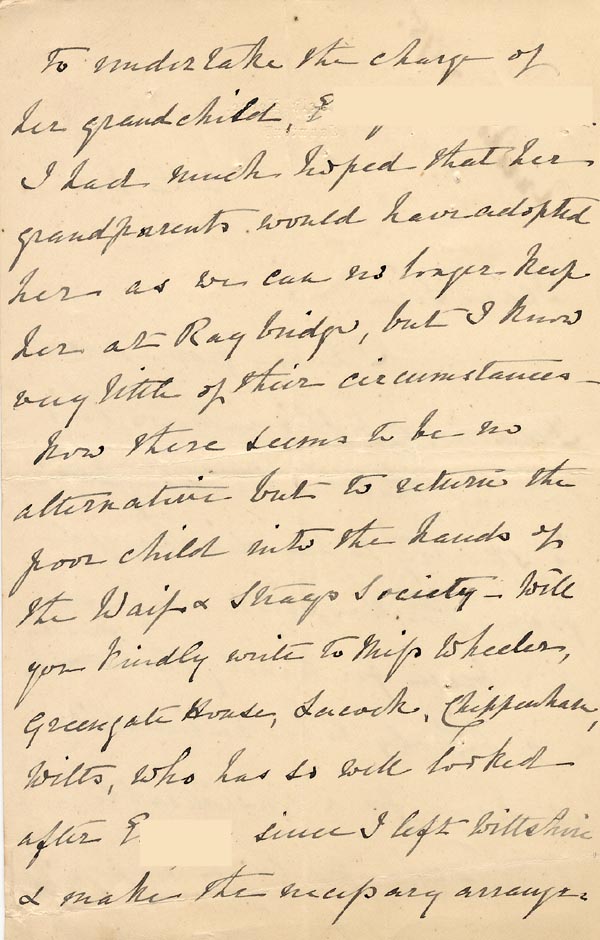 To undertake the charge of
her grandchild, E
I had much hoped that her
grandparents would have adopted
her as we can no longer keep
her at Raybridge, but I know
very little of their circumstances –
Now there seems to be no
alternative but to return the
poor child into the hands of
the Waifs & Strays Society – Will
you kindly write to Miss Wheeler,
Greengate House, Lacock, Chippenham,
Wilts, who has so well looked
after E since I left Wiltshire
& make the necessary arrange-